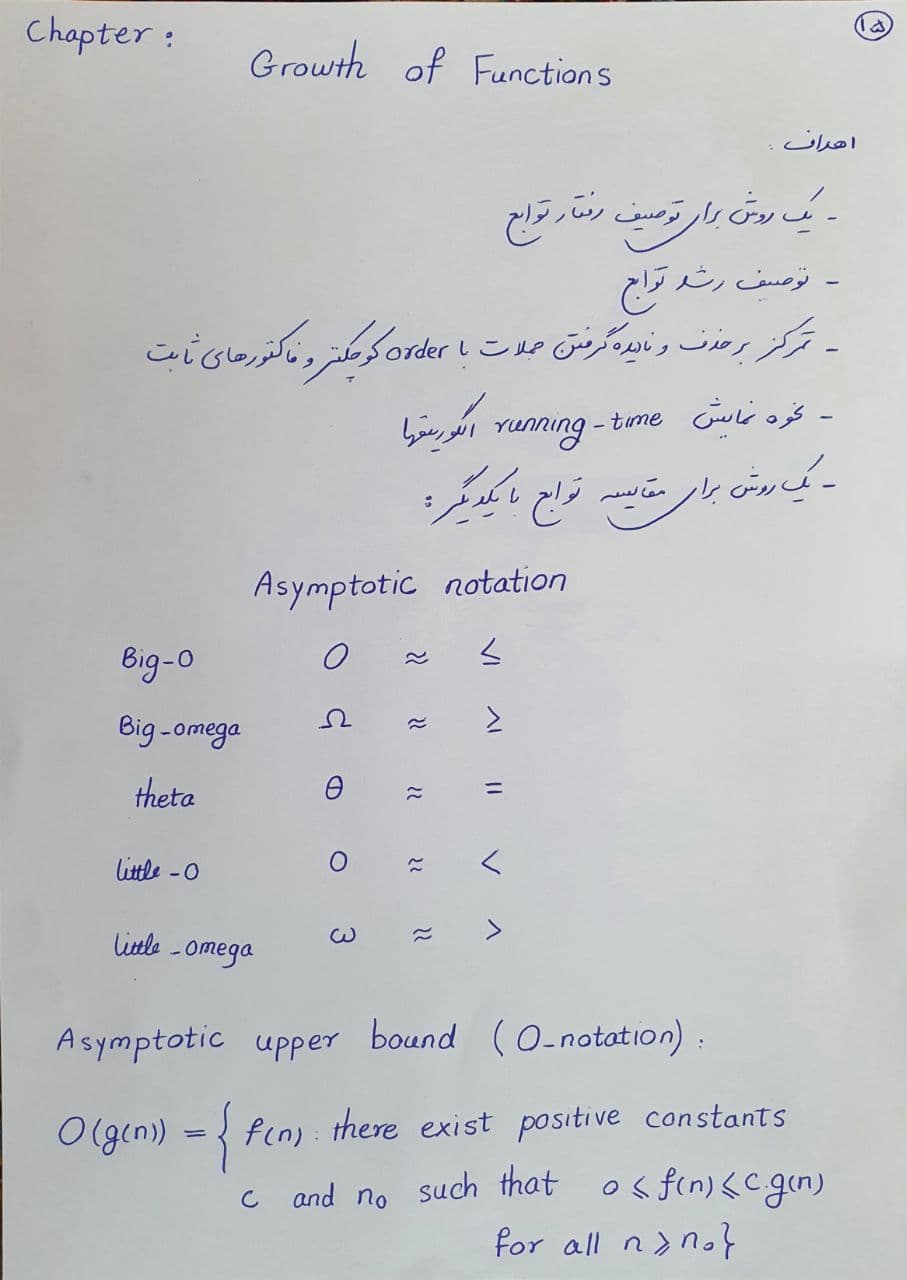 Chapter :
۱۵
Growth of Functions
اهداف :
- یک روش برای توصیف رفتار توابع
- توصیف رشد توابع
- تمرکز بر حذف و نادیده گرفتن جملات با order کوچکتر و فاکتورهای ثابت
- نحوه نمایش running-time الگوریتمها
- یک روش برای مقایسه توابع با یکدیگر :
Asymptotic notation
Big-O O ≈ ≤
Big-omega Ω ≈ ≥
theta θ ≈ =
little-o o ≈ <
little-omega ω ≈ >
Asymptotic upper bound (O-notation) :
O(g(n)) = { f(n) : there exist positive constants
c and n₀ such that 0 ≤ f(n) ≤ c.g(n)
for all n ≥ n₀ }